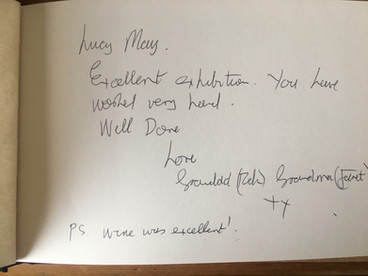 Lucy May.
Excellent exhibition. You have
worked very hard.
Well Done
Love
Grandad (Rob) Grandma (Janet)
xx
PS wine was excellent!